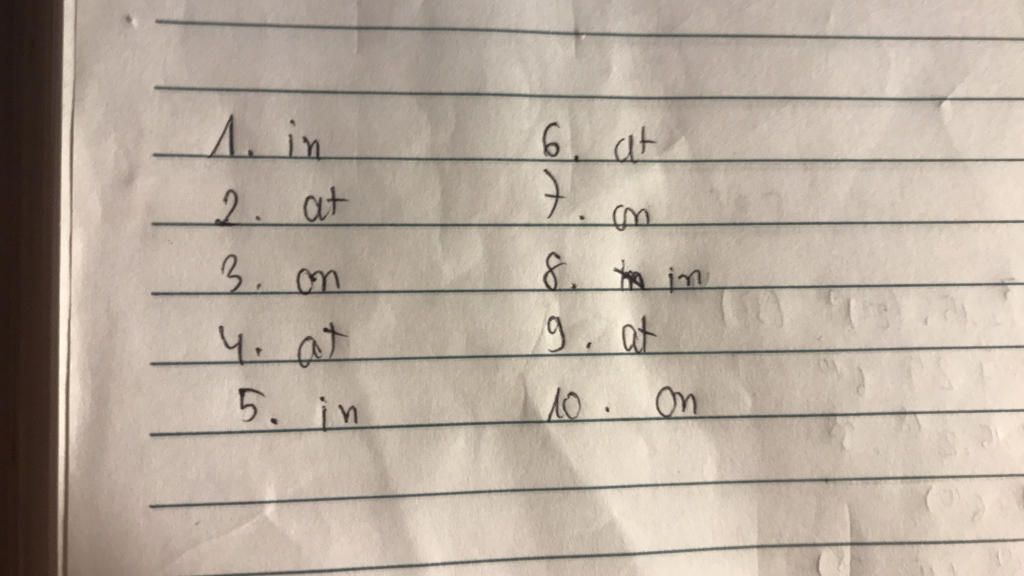 1. in
2. at
3. on
4. at
5. in
6. at
7. on
8. in
9. at
10. on